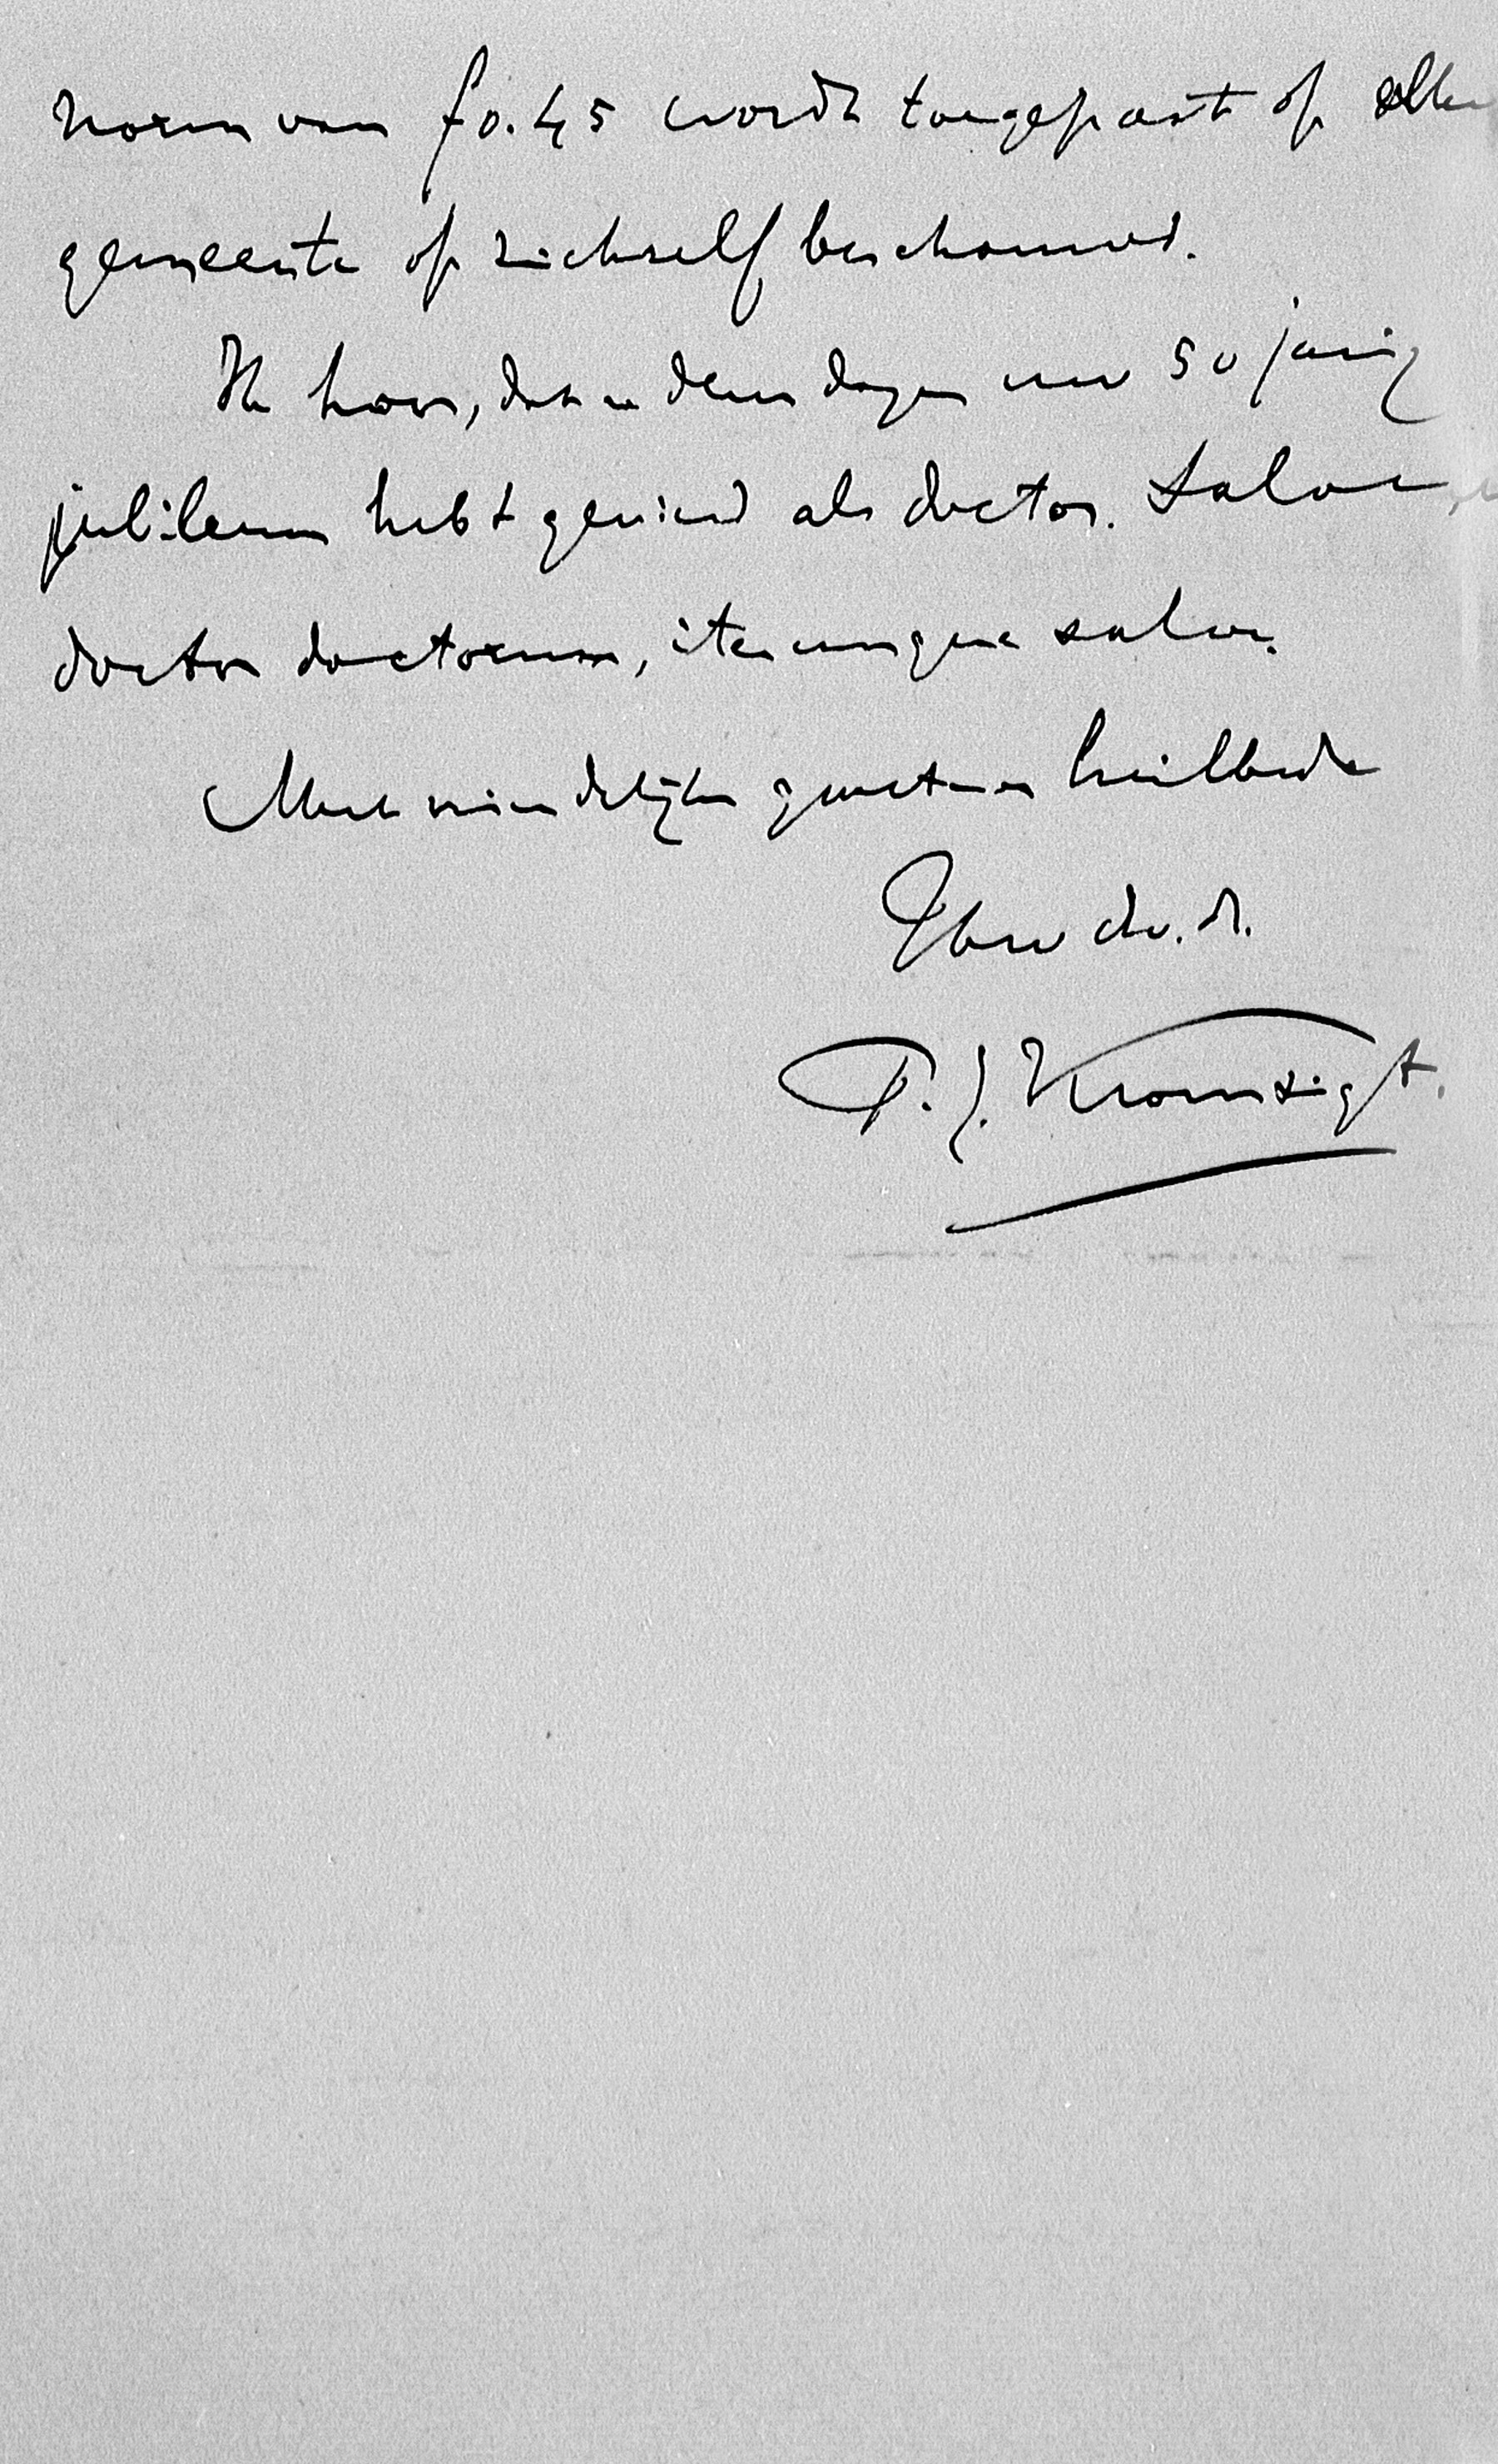 norm van f 0.45 wordt toegepast op elke
gemeente op zichzelf beschouwd.
Ik hoor, dat u dezer dagen uw 50 jarig
jubileum hebt gevierd als doctor. Salve,
doctor doctorum, iterumque salve.
Met vriendelijke groeten en heilbede
Uw dw. dr.
P. J. Kromsigt.